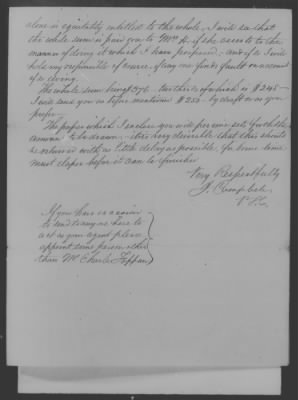 alone is equitably entitled to the whole, I will see that
the whole sum is paid you to Mrs. assents to the
manner of doing it which I have proposed – and if so I will
hold my responsible of course, if any one finds fault on account
of so doing.
The whole sum being 376 two thirds of which is $245 –
I will send you as before mentioned $250 – by draft or as you
prefer –
The paper which I enclose you will perceive sets forth the
to be drawn – it is very desirable that this should
be returned with as little delay as possible, for some time
must elapse before it can be finished
Very Respectfully
J. Campbell
If you have occasion
to send to any one here to
act as your agent please
appoint some person other
than Mr Charles Tappan